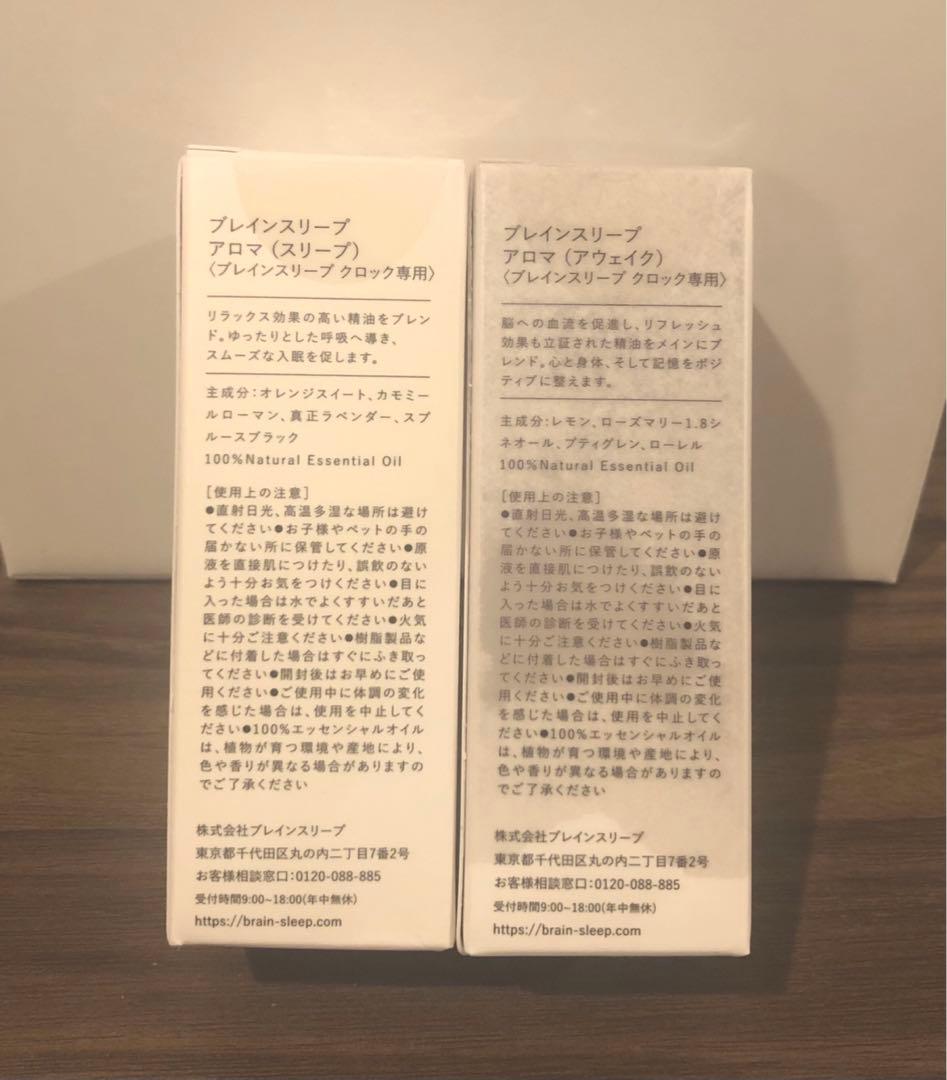 ブレインスリープ
アロマ（スリープ）
〈ブレインスリープ クロック専用〉
リラックス効果の高い精油をブレン
ド。ゆったりとした呼吸へ導き、
スムーズな入眠を促します。
主成分：オレンジスイート、カモミー
ルローマン、真正ラベンダー、スプ
ルースブラック
100%Natural Essential Oil
［使用上の注意］
●直射日光、高温多湿な場所は避け
てください●お子様やペットの手の
届かない所に保管してください●原
液を直接肌につけたり、誤飲のない
よう十分お気をつけください●目に
入った場合は水でよくすすいだあと
医師の診断を受けてください●火気
に十分ご注意ください●樹脂製品な
どに付着した場合はすぐにふき取っ
てください●開封後はお早めにご使
用ください●ご使用中に体調の変化
を感じた場合は、使用を中止してく
ださい●100%エッセンシャルオイル
は、植物が育つ環境や産地により、
色や香りが異なる場合がありますの
でご了承ください
株式会社ブレインスリープ
東京都千代田区丸の内二丁目7番2号
お客様相談窓口：0120-088-885
受付時間9:00~18:00(年中無休)
https://brain-sleep.com
ブレインスリープ
アロマ（アウェイク）
〈ブレインスリープ クロック専用〉
脳への血流を促進し、リフレッシュ
効果も立証された精油をメインにブ
レンド。心と身体、そして記憶をポジ
ティブに整えます。
主成分：レモン、ローズマリー1.8シ
ネオール、プティグレン、ローレル
100%Natural Essential Oil
［使用上の注意］
●直射日光、高温多湿な場所は避け
てください●お子様やペットの手の
届かない所に保管してください●原
液を直接肌につけたり、誤飲のない
よう十分お気をつけください●目に
入った場合は水でよくすすいだあと
医師の診断を受けてください●火気
に十分ご注意ください●樹脂製品な
どに付着した場合はすぐにふき取っ
てください●開封後はお早めにご使
用ください●ご使用中に体調の変化
を感じた場合は、使用を中止してく
ださい●100%エッセンシャルオイル
は、植物が育つ環境や産地により、
色や香りが異なる場合がありますの
でご了承ください
株式会社ブレインスリープ
東京都千代田区丸の内二丁目7番2号
お客様相談窓口：0120-088-885
受付時間9:00~18:00(年中無休)
https://brain-sleep.com